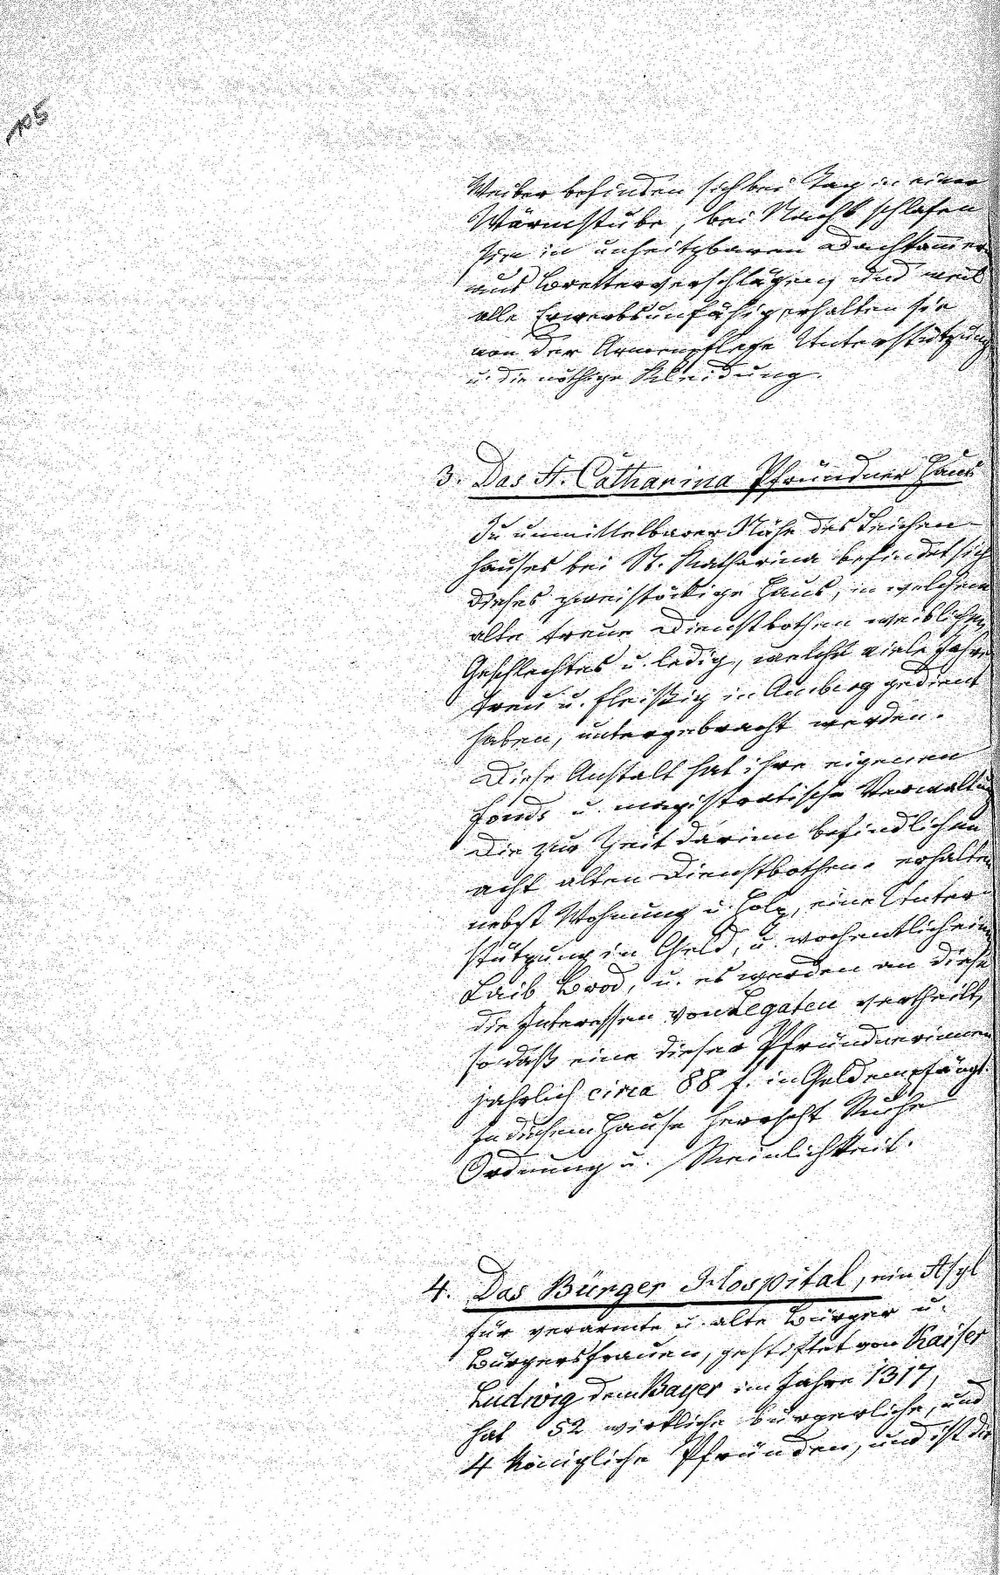 105
Weiber befinden sich bei Tag in einer
Wärmstube, bei Nacht schlafen
sie in unheitzbaren Dachkammern
aus Bretterverschlägen, und weil
alle Erwerbsunfähig, erhalten sie
von der Armenpflege Unterstützung
u. die nöthige Kleidung.
3. Das St. Catharina Pfründner Haus
In unmittelbarer Nähe des Leichen-
hauses bei St. Katharina befindet sich
dieses zweistöckige Haus, in welchem
alte treue Dienstbothen weiblichen
Geschlechtes u. ledig, welche viele Jahre
treu u. fleißig in Amberg gedient
haben, untergebracht werden.
Diese Anstalt hat ihre eigenen
Fonds u. magistratische Verwaltung
Die zur Zeit darinn befindlichen
acht alten Dienstbothen erhalten
nebst Wohnung u. Holz, eine Unter-
stützung in Geld, u. wochentlich einen
Laib Brod, u. es werden an diese
die Interessen von Legaten vertheilt,
so daß eine dieser Pfründnerinnen
jährlich circa 88 f. in Geld empfängt.
In diesem Hause herrscht Ruhe
Ordnung u. Reinlichkeit.
4. Das Bürger Hospital, ein Asyl
für verarmte u. alte Bürger u.
Bürgersfrauen, gestiftet von Kaiser
Ludwig dem Bayer im Jahre 1317,
hat 52 wirkliche bürgerliche, und
4 königliche Pfründen, und ist die